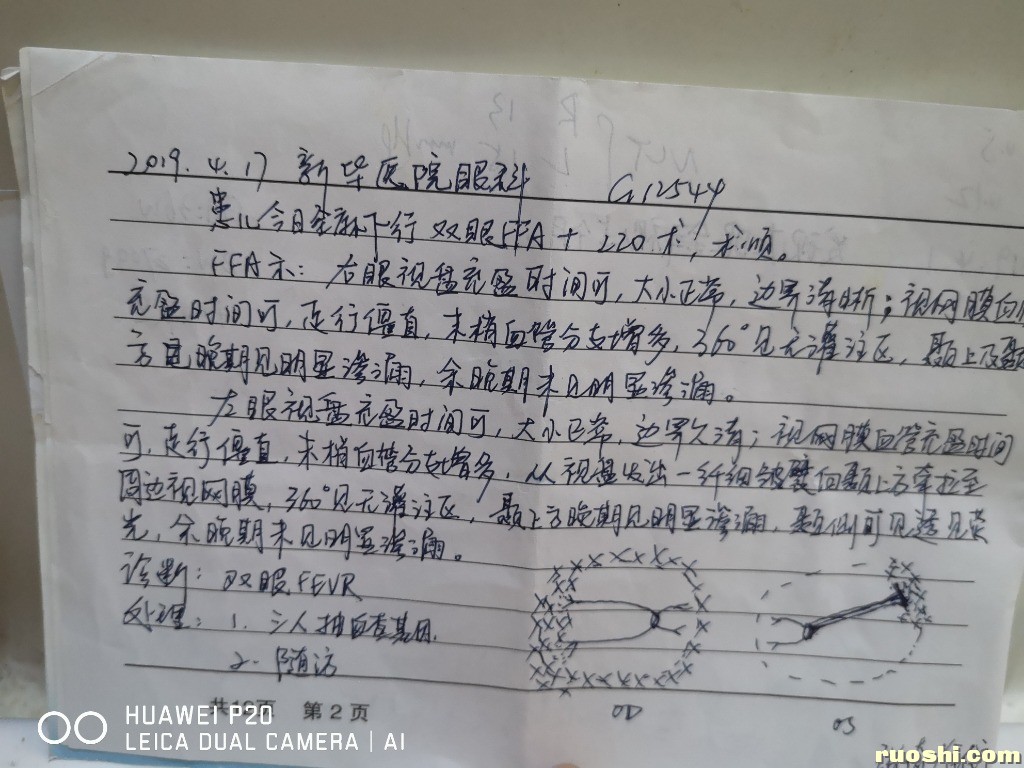 2019.4.17 新华医院眼科 G12544
患儿今日全麻下行双眼FFA+LIO术,术顺。
FFA示:右眼视盘充盈时间可,大小正常,边界清晰;视网膜血管
充盈时间可,走行僵直,末梢血管分支增多,360°见无灌注区,颞上及颞
方晚期见明显渗漏,余晚期未见明显渗漏。
左眼视盘充盈时间可,大小正常,边界欠清;视网膜血管充盈时间
可,走行僵直,末梢血管分支增多,从视盘发出一纤细皱襞向颞上方牵拉至
周边视网膜,360°见无灌注区,颞上方晚期见明显渗漏,颞侧可见透见荧
光,余晚期未见明显渗漏。
诊断:双眼FEVR
处理:1.三人抽血查基因.
2.随访
OD OS
共19页 第2页
HUAWEI P20
LEICA DUAL CAMERA | AI
ruoshi.com